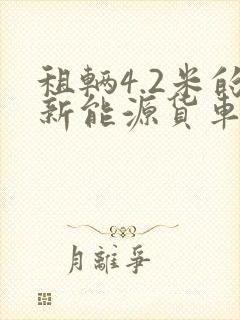 租辆4.2米的
新能源货车
月離爭